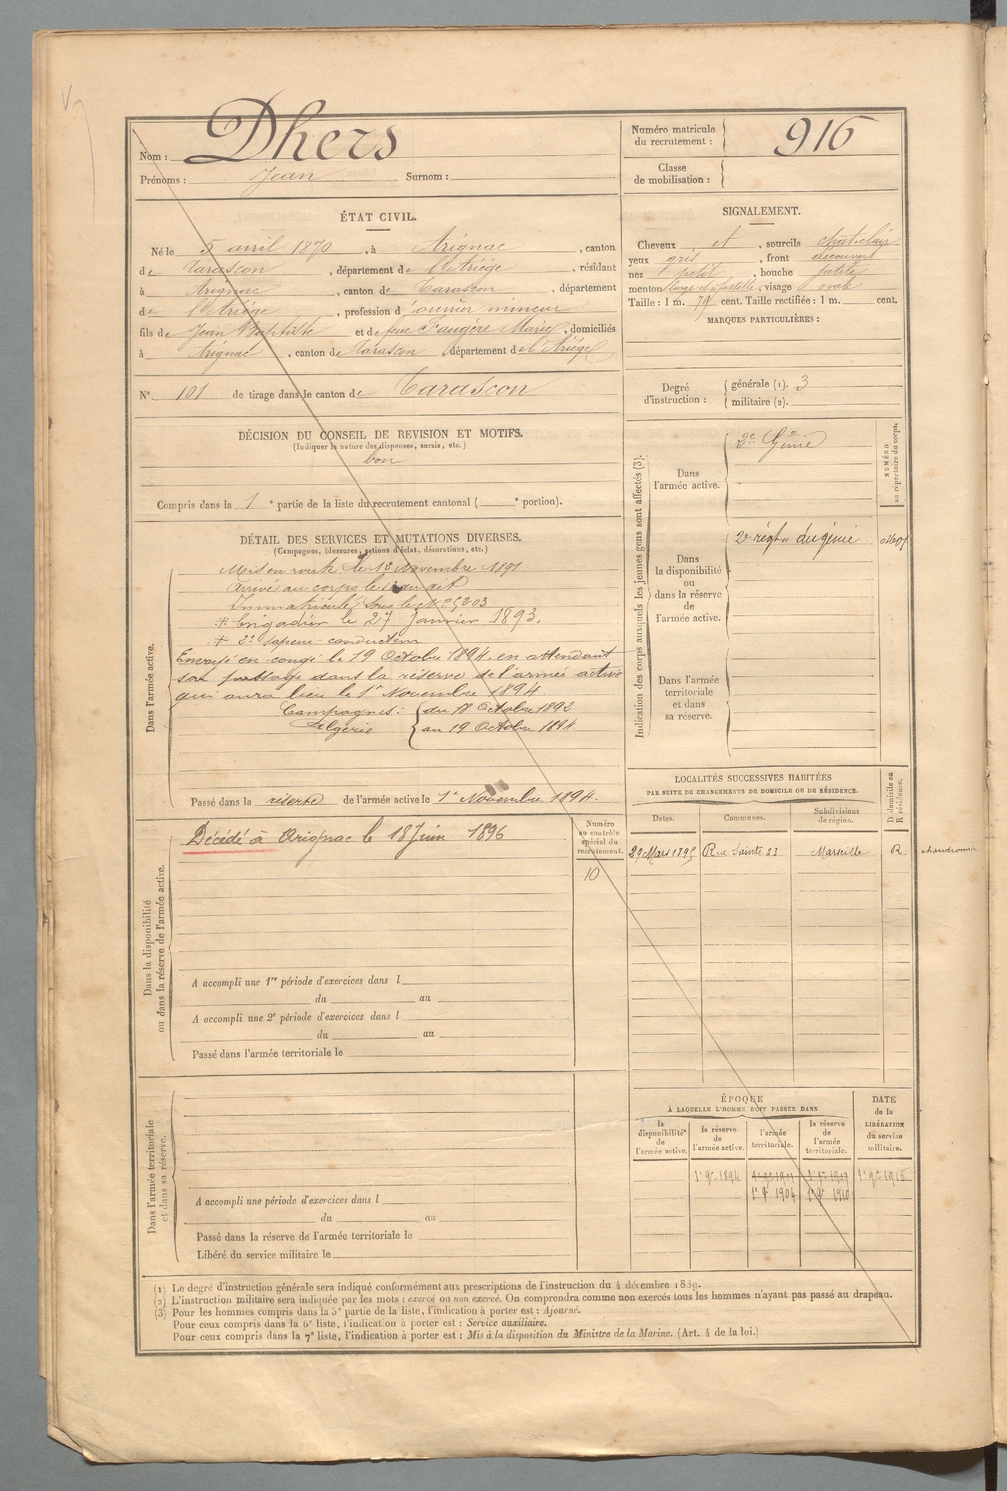 Nom : Dhers
Prénoms : Jean Surnom :
Numéro matricule du recrutement : 916
Classe de mobilisation :
ÉTAT CIVIL.
Né le 5 avril 1870, à Arignac, canton
de Tarascon, département de l'Ariége, résidant
à Arignac, canton de Tarascon, département
de l'Ariége, profession d'ouvrier mineur
fils de Jean Baptiste et de feue Faugère Marie, domiciliés
à Arignac, canton de Tarascon, département de l'Ariége
N° 101 de tirage dans le canton de Tarascon
SIGNALEMENT.
Cheveux et, sourcils chât clair
yeux gris, front découvert
nez petit, bouche petite
menton, visage ovale
Taille : 1 m. 74 cent. Taille rectifiée : 1 m. cent.
MARQUES PARTICULIÈRES :
Degré d'instruction : générale (1). 3
militaire (2).
DÉCISION DU CONSEIL DE REVISION ET MOTIFS.
(Indiquer la nature des dispenses, sursis, etc.)
bon
Compris dans la 1e partie de la liste du recrutement cantonal ( e portion).
DÉTAIL DES SERVICES ET MUTATIONS DIVERSES.
(Campagnes, blessures, actions d'éclat, décorations, etc.)
Dans l'armée active.
Mis en route le 13 Novembre 1891
Arrivé au corps le dudit
Immatriculé sous le N° 5203
* Engadin le 27 Janvier 1893.
+ 2e sapeur conducteur
Envoyé en congé le 19 Octobre 1894 en attendant
son passage dans la réserve de l'armée active
qui aura lieu le 1er Novembre 1894
Campagnes : du 18 Octobre 1892
Algérie au 19 Octobre 1894
Passé dans la réserve de l'armée active le 1er Novembre 1894.
Indication des corps auxquels les jeunes gens sont affectés (3).
NUMÉRO au répertoire du corps.
Dans l'armée active.
2e Génie
Dans la disponibilité ou dans la réserve de l'armée active.
2e régt du génie
Dans l'armée territoriale et dans sa réserve.
Dans la disponibilité ou dans la réserve de l'armée active.
Décédé à Arignac le 18 Juin 1896
Numéro au contrôle spécial du recrutement.
10
A accompli une 1re période d'exercices dans l
du au
A accompli une 2e période d'exercices dans l
du au
Passé dans l'armée territoriale le
LOCALITÉS SUCCESSIVES HABITÉES
PAR SUITE DE CHANGEMENTS DE DOMICILE OU DE RÉSIDENCE.
D domicile ou R résidence.
Dates. Communes. Subdivisions de région.
29 Mars 1895 Rue Sainte 33 Marseille R
Dans l'armée territoriale et dans sa réserve.
A accompli une période d'exercices dans l
du au
Passé dans la réserve de l'armée territoriale le
Libéré du service militaire le
ÉPOQUE
À LAQUELLE L'HOMME DOIT PASSER DANS
la disponibilité de l'armée active.
la réserve de l'armée active.
l'armée territoriale.
la réserve de l'armée territoriale.
DATE de la LIBÉRATION du service militaire.
1er 9e 1894 1er 9e 1901 1er 9e 1907 1er 9e 1916
1er 9e 1904 1er 9e 1910
(1) Le degré d'instruction générale sera indiqué conformément aux prescriptions de l'instruction du 4 décembre 1889.
(2) L'instruction militaire sera indiquée par les mots : exercé ou non exercé. On comprendra comme non exercés tous les hommes n'ayant pas passé au drapeau.
(3) Pour les hommes compris dans la 5e partie de la liste, l'indication à porter est : Ajourné.
Pour ceux compris dans la 6e liste, l'indication à porter est : Service auxiliaire.
Pour ceux compris dans la 7e liste, l'indication à porter est : Mis à la disposition du Ministre de la Marine. (Art. 4 de la loi.)